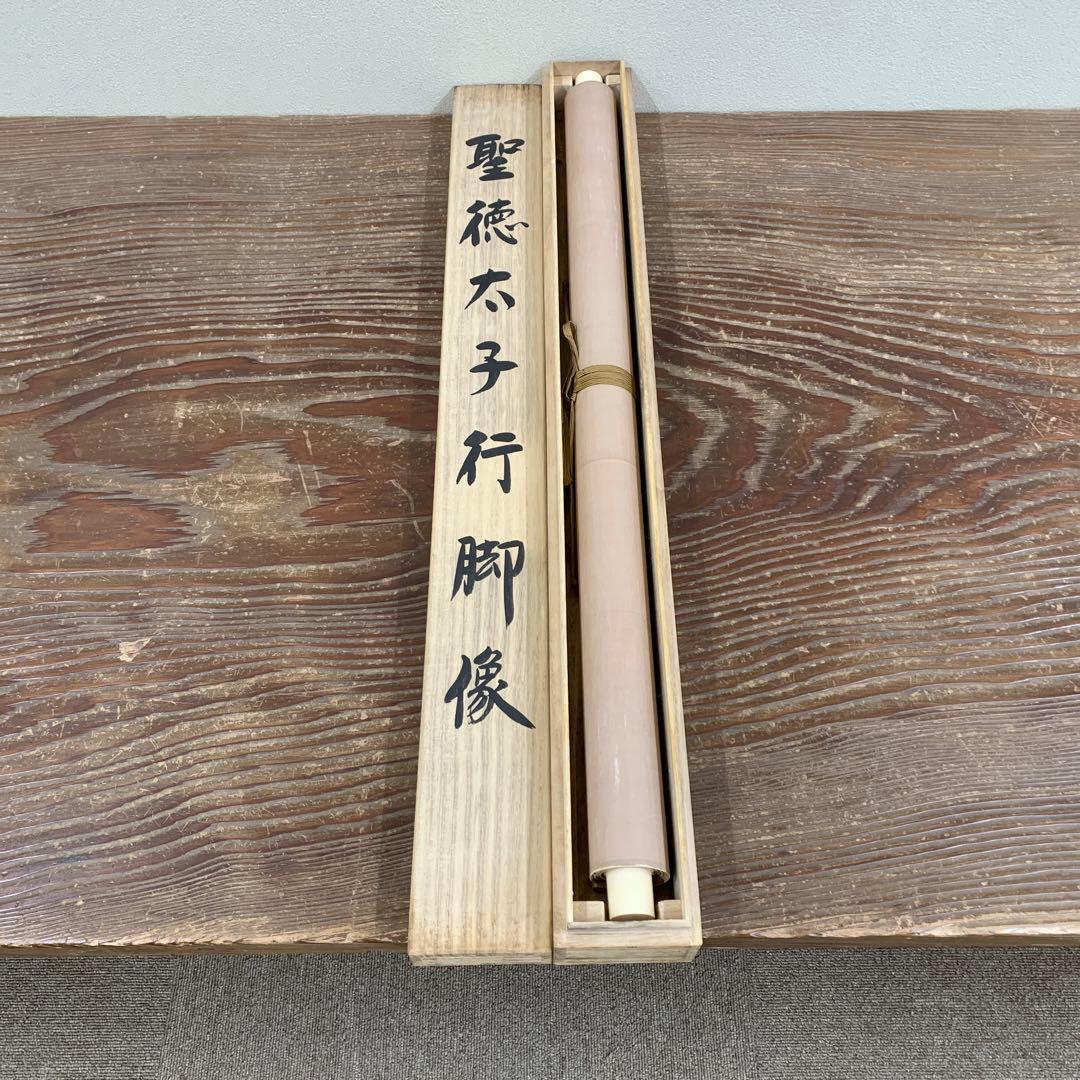 聖徳太子行脚像